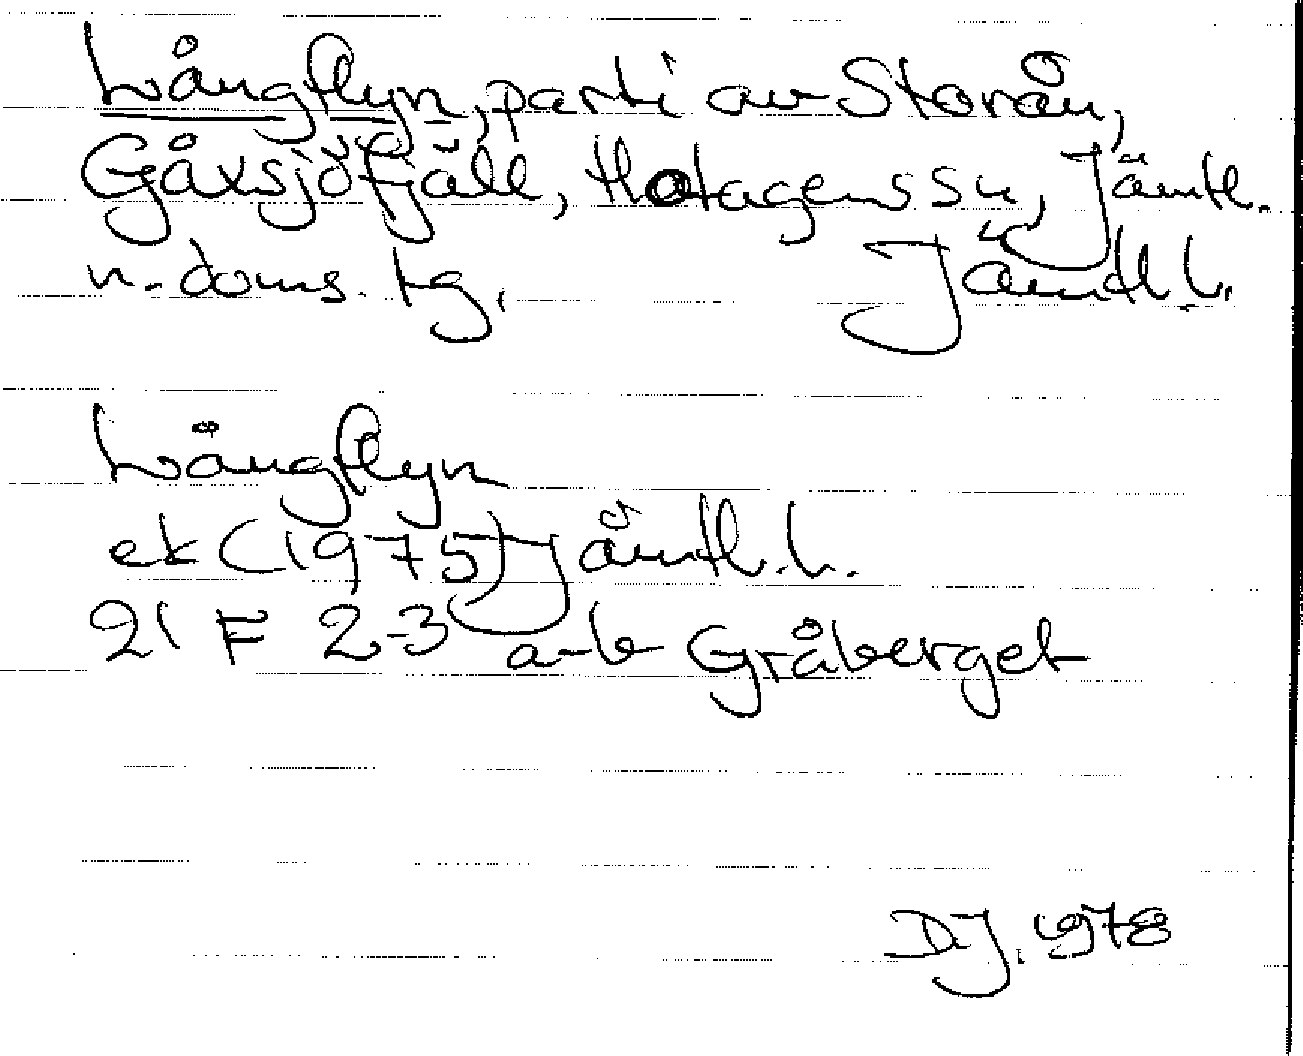 Långflyn, parti av Storån,
Gåxsjöfjäll, Hotagens sn, Jämtl.
n. doms. tg. Jämtl. l.
Långflyn
ek (1975) Jämtl. l.
21 F 2-3 a-b Gråberget
DJ. 1978